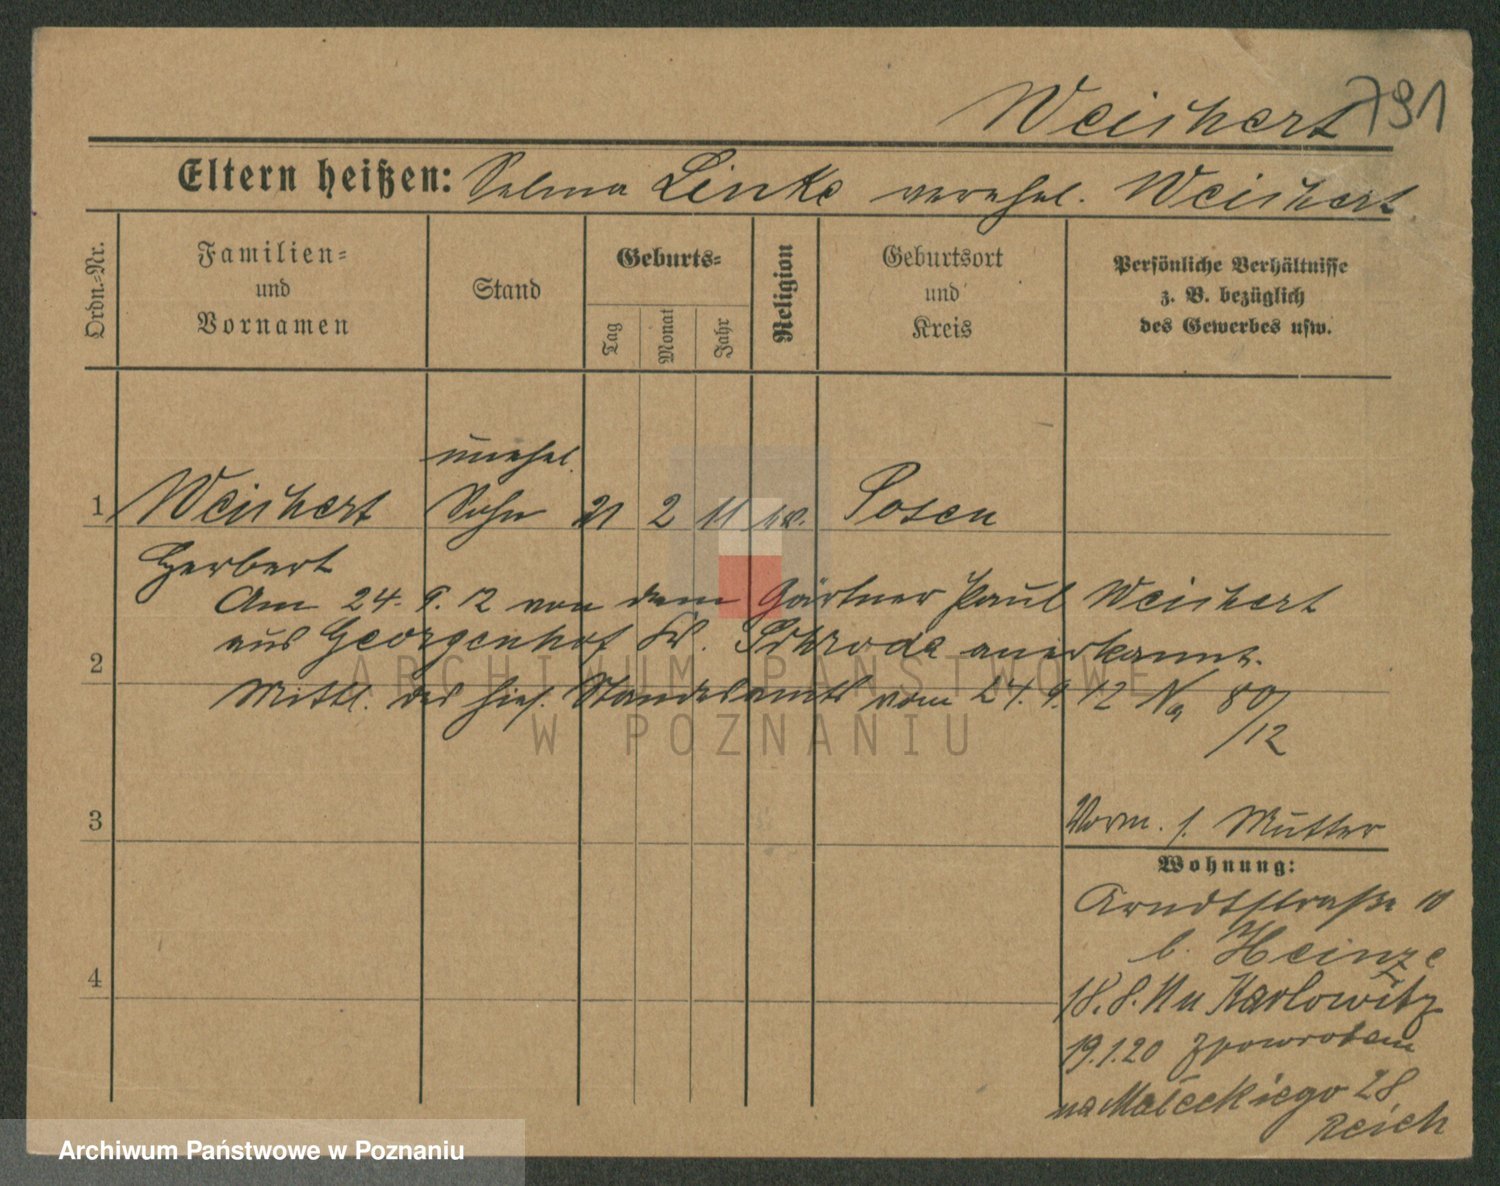 Weichert 791
Eltern heißen: Selma Linke verehel. Weichert
Ordn.=Nr.
Familien=
und
Vornamen
Stand
Geburts=
Tag
Monat
Jahr
Religion
Geburtsort
und
Kreis
Persönliche Verhältnisse
z. B. bezüglich
des Gewerbes usw.
unehel.
1 Weichert Sohn 21 2 11 ev. Posen
Herbert
Am 24. 9. 12 von dem Gärtner Paul Weichert
aus Georgenhof Kr. Schroda anerkannt.
2
Mittl. des hies. Standesamts vom 24. 9. 12 No 80/12
3
Vorm. s. Mutter
Wohnung:
Arndtstraße 10
b. Heinze
4
18.8.11 n Karlowitz
19.1.20 zpowrotem
na Małeckiego 28
Reich
ARCHIWUM PAŃSTWOWE
W POZNANIU
Archiwum Państwowe w Poznaniu